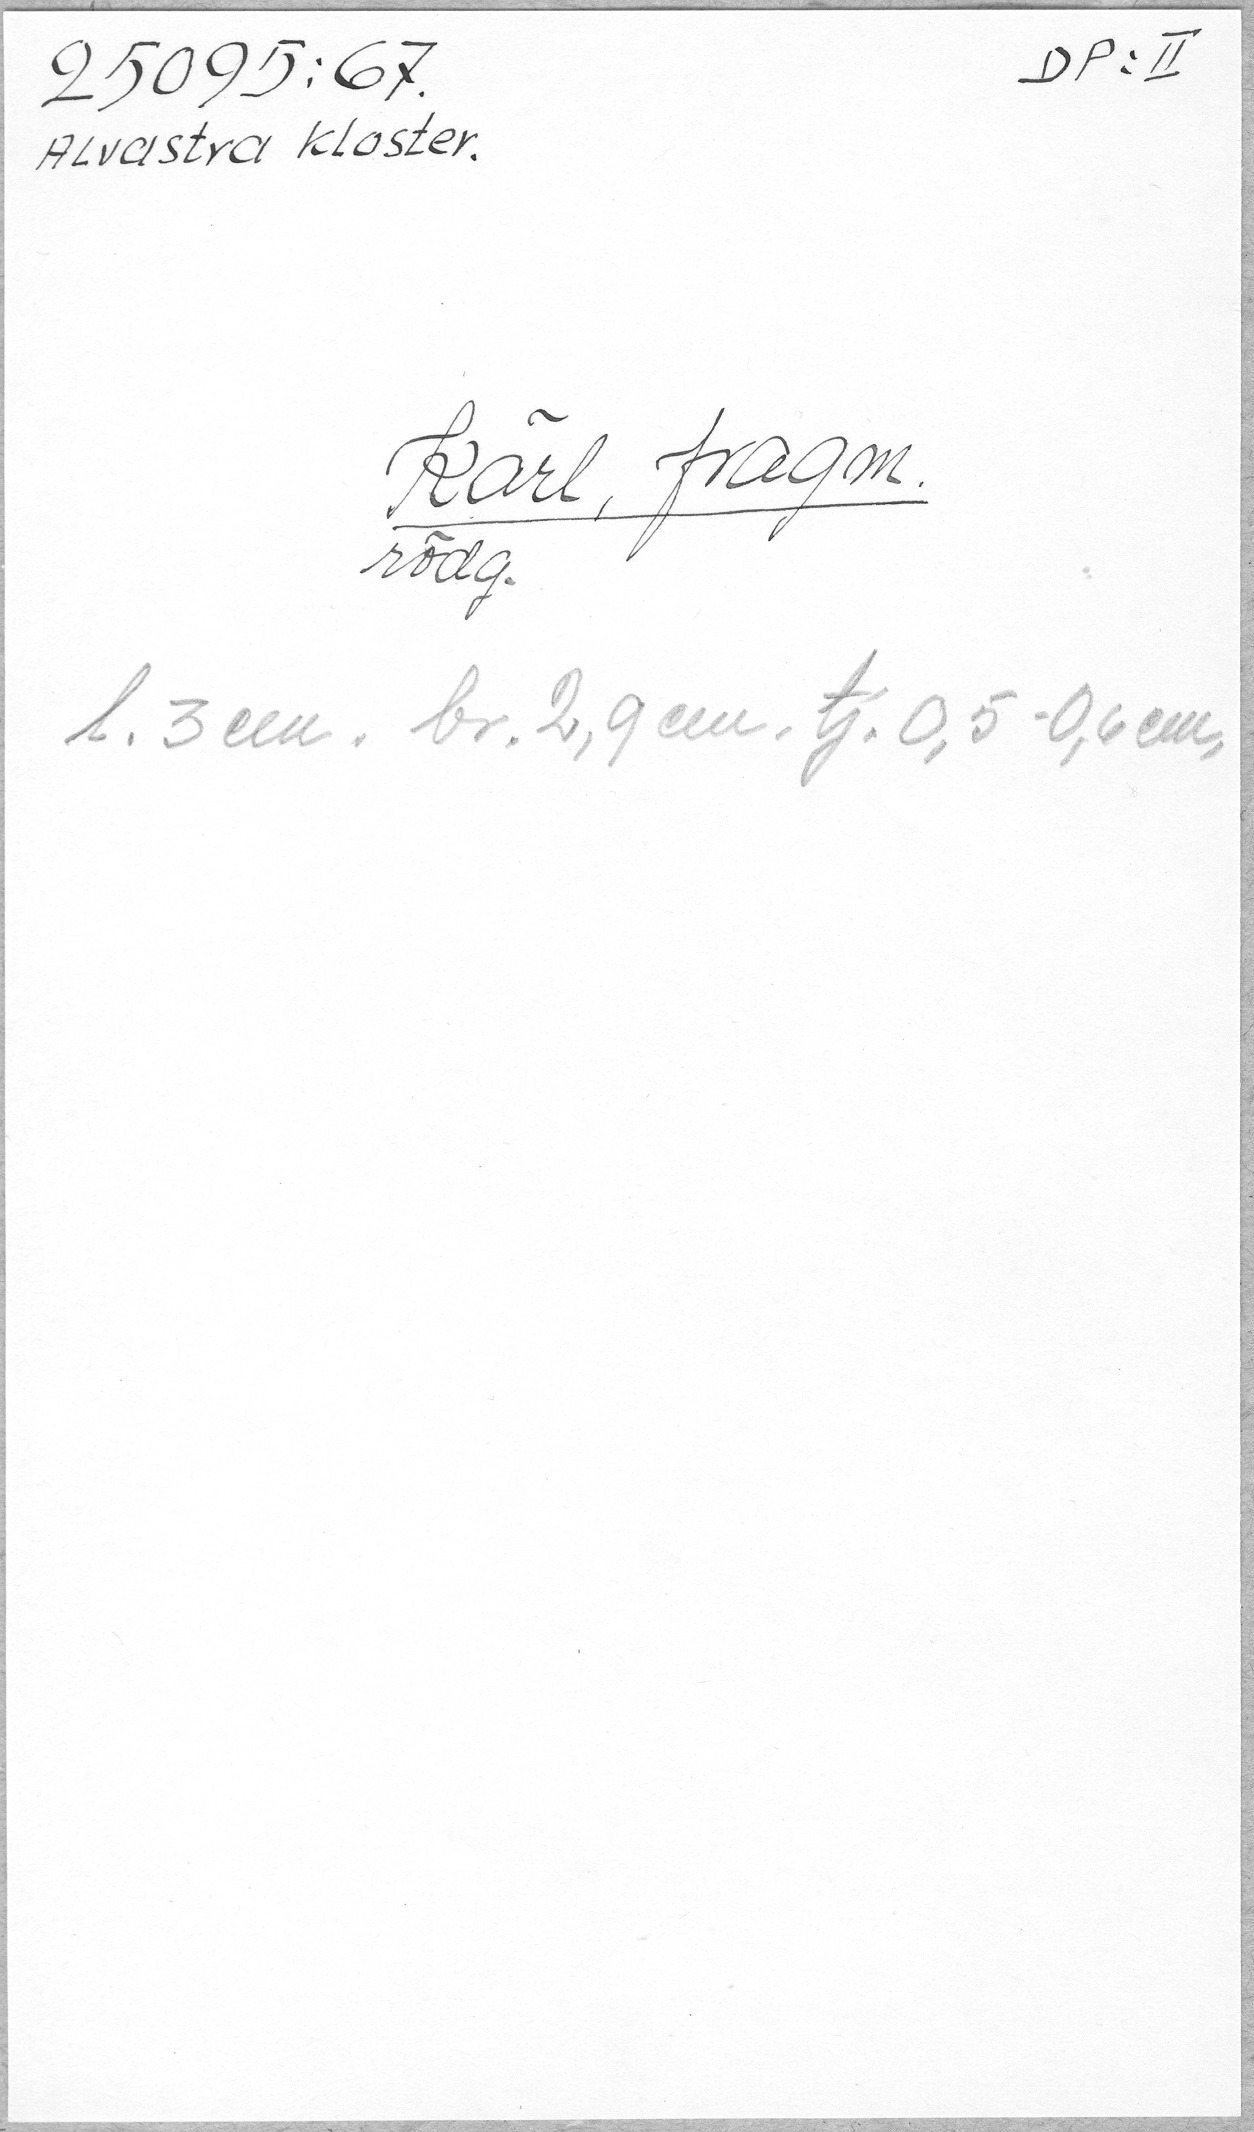 25095:67.
DP:II
Alvastra kloster.
Kärl, fragm.
rödg.
l. 3 cm. br. 2,9 cm. tj. 0,5-0,6 cm.